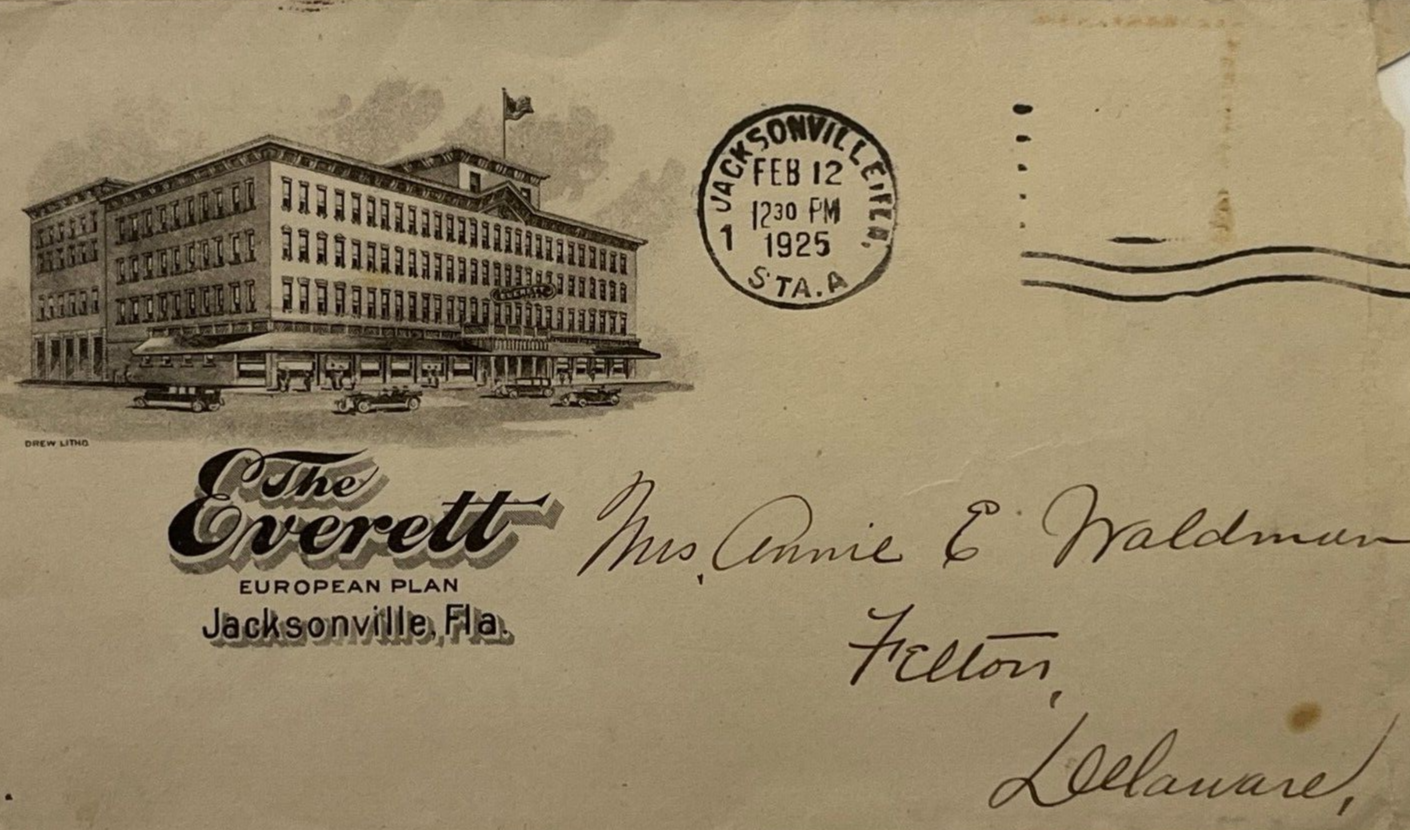 JACKSONVILLE, FLA.
FEB 12
12 30 PM
1 1925
STA. A
EVERETT
DREW LITHO
The
Everett
EUROPEAN PLAN
Jacksonville, Fla.
Mrs. Annie E Waldman
Felton,
Delaware,